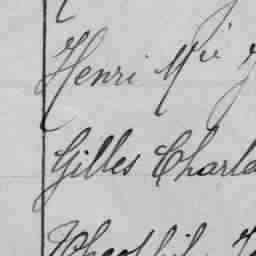 Henri Mie
Gilles Charl
Theophile